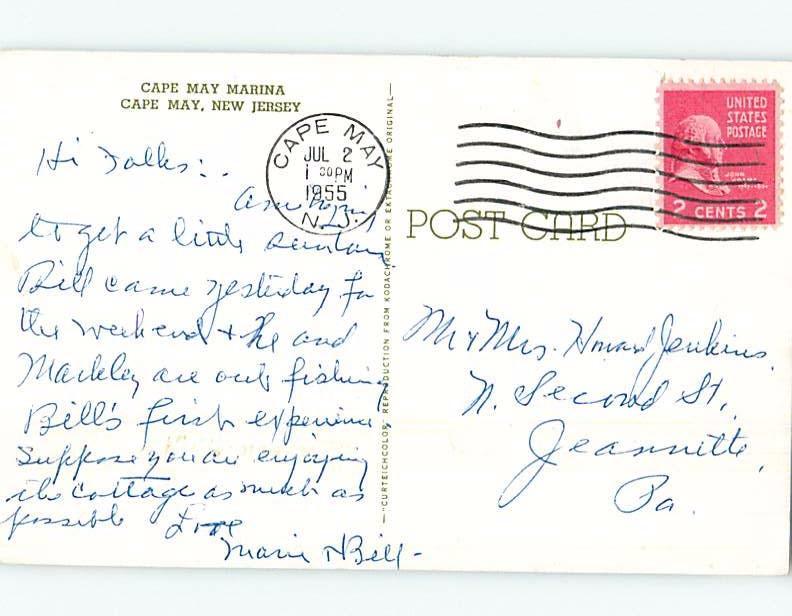 CAPE MAY MARINA
CAPE MAY, NEW JERSEY
Hi Folks:
Am trying
to get a little suntan
Bill came yesterday for
the weekend + he and
Mackley are out fishing
Bill's first experience
Suppose you are enjoying
the cottage as much as
possible Love
Marie & Bill -
CAPE MAY
JUL 2
1 30 PM
1955
N.J.
—"CURTEICHCOLOR" REPRODUCTION FROM KODACHROME OR EKTACHROME ORIGINAL—
POST CARD
UNITED
STATES
POSTAGE
JOHN
ADAMS
2 CENTS 2
Mr & Mrs. Howard Jenkins.
N. Second St.,
Jeannette,
Pa.